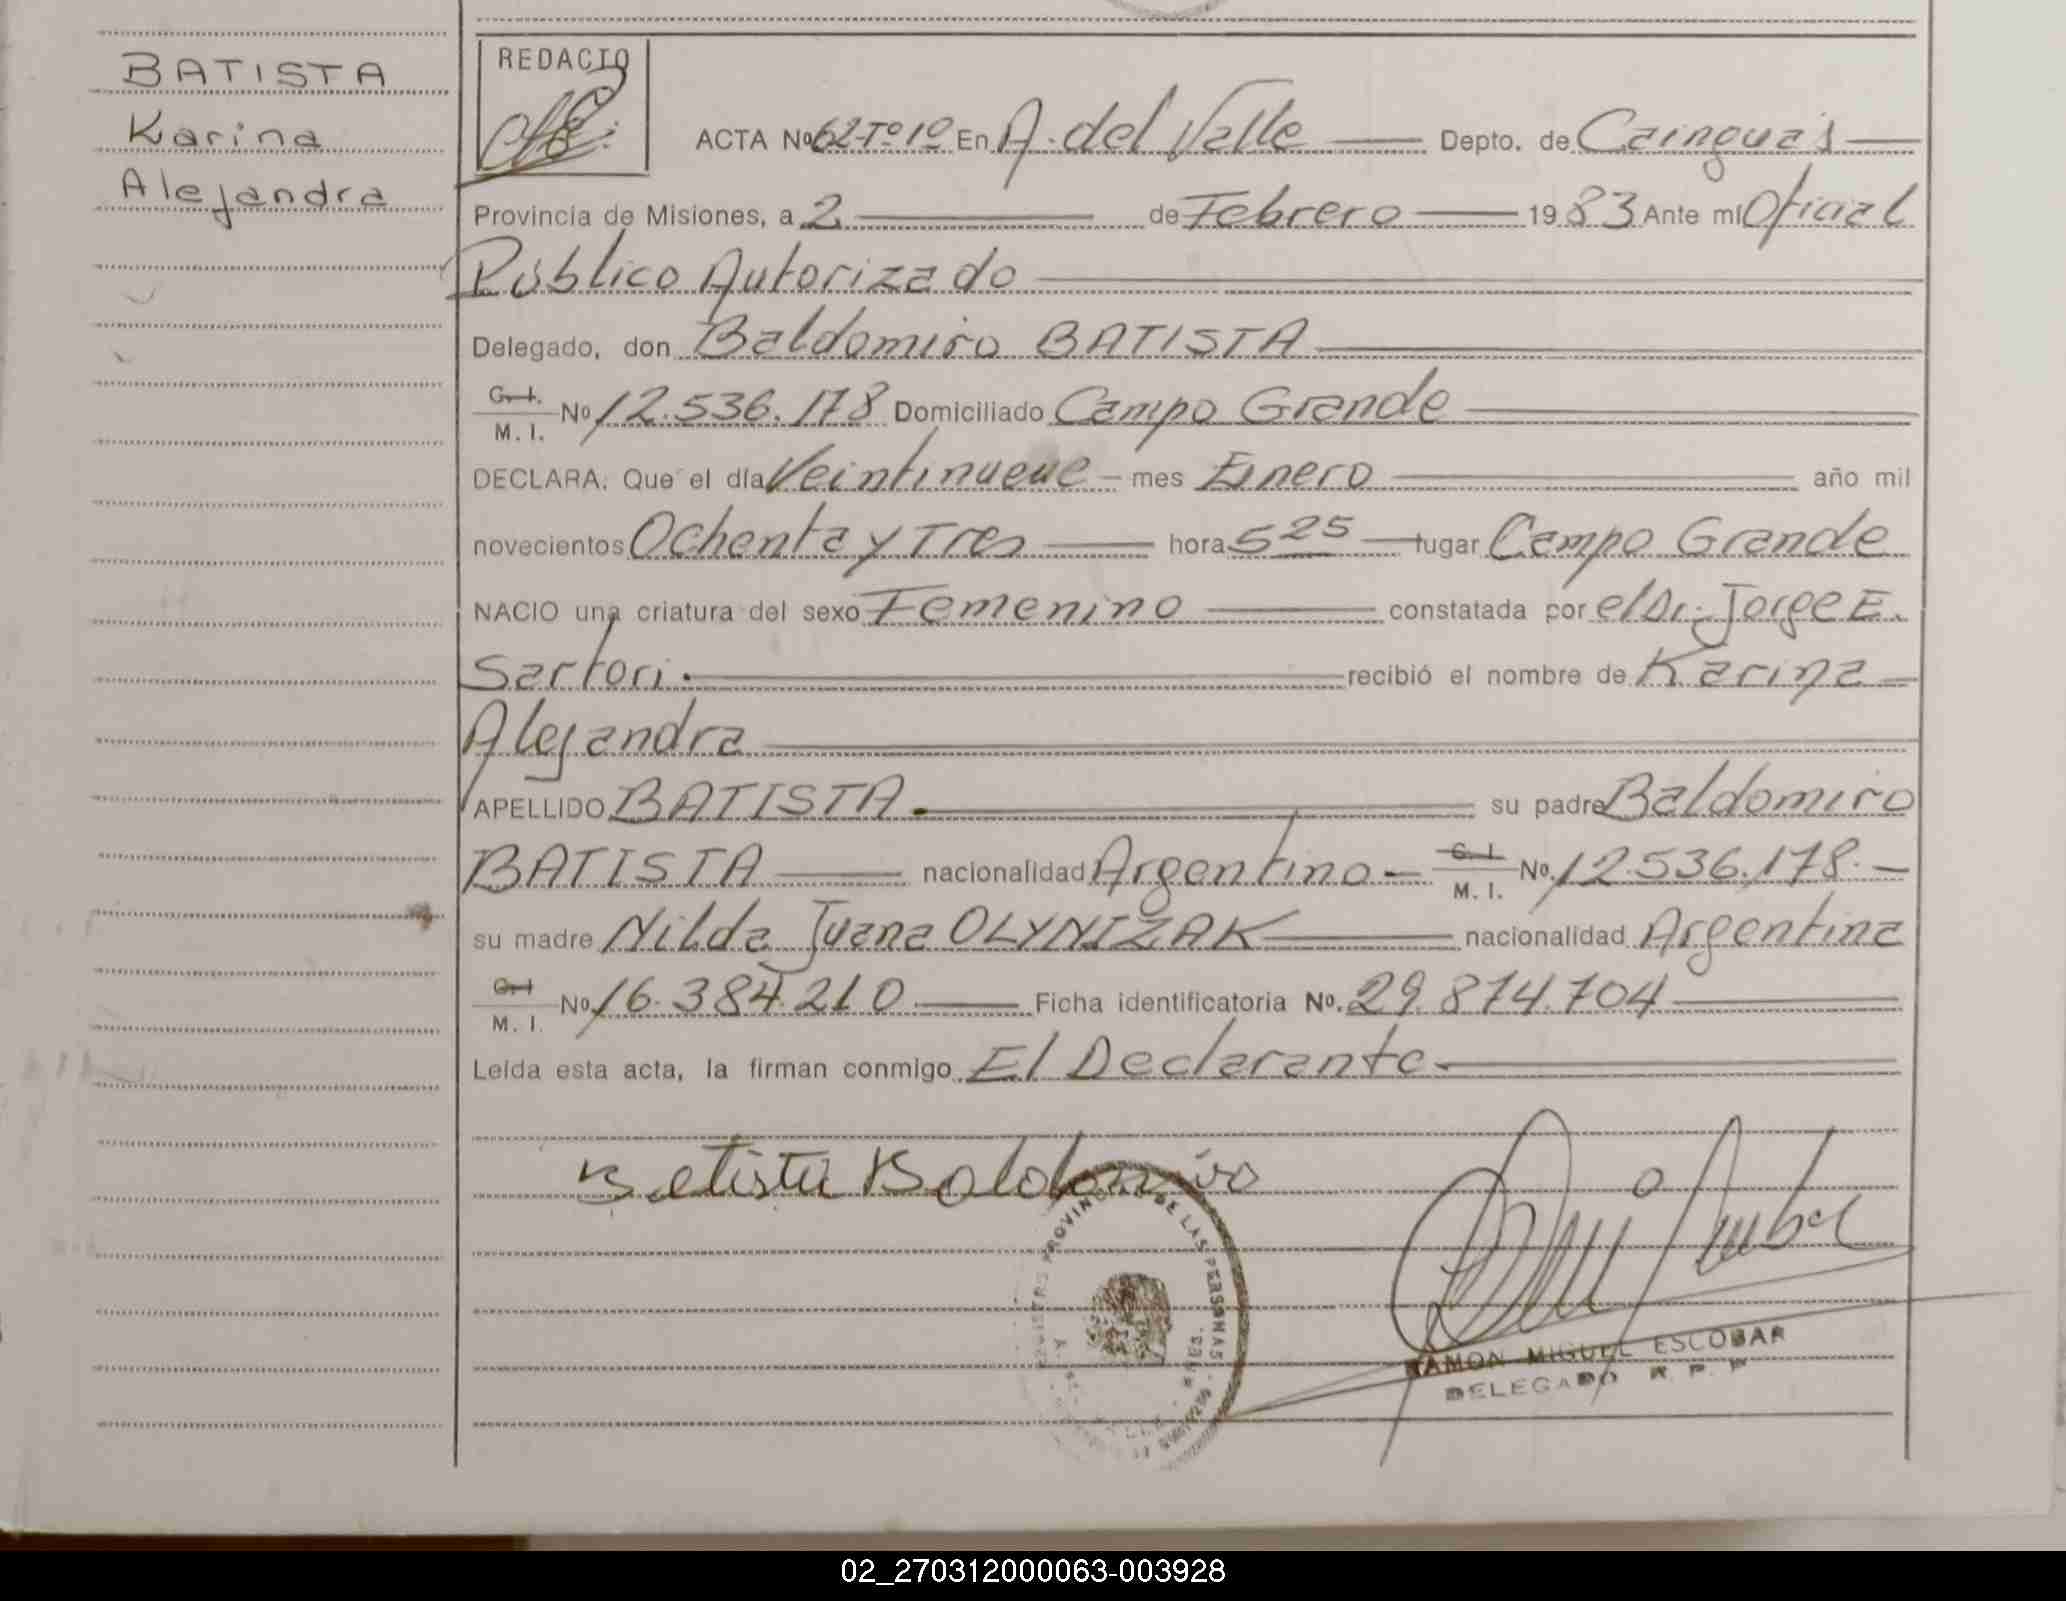 BATISTA
Karina
Alejandra
REDACTO
ACTA Nº 62-Tº1º En A. del Valle Depto. de Cainguás
Provincia de Misiones, a 2 de Febrero 1983 Ante mí Oficial
Público Autorizado
Delegado, don Baldomiro BATISTA
C.I. M. I. Nº 12.536.178 Domiciliado Campo Grande
DECLARA: Que el día Veintinueve - mes Enero año mil
novecientos Ochenta y Tres hora 5 25 lugar Campo Grande
NACIO una criatura del sexo Femenino constatada por el Dr. Jorge E.
Sartori. recibió el nombre de Karina
Alejandra
APELLIDO BATISTA. su padre Baldomiro
BATISTA nacionalidad Argentino - C.I. M. I. Nº. 12.536.178.-
su madre Nilda Juana OLYNIZAK nacionalidad Argentina
C.I. M. I. Nº 16.384.210 Ficha identificatoria Nº. 29.874.704
Leída esta acta, la firman conmigo El Declarante
Batista Baldomiro
PROVINCIAL DE LAS PERSONAS
RAMON MIGUEL ESCOBAR
DELEGADO R. P. P
02_270312000063-003928